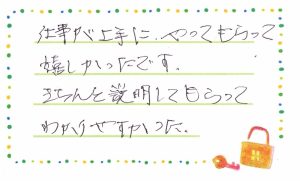 仕事が上手に、やってもらって
嬉しかったです。
きちんと説明してもらって
わかりやすかった。